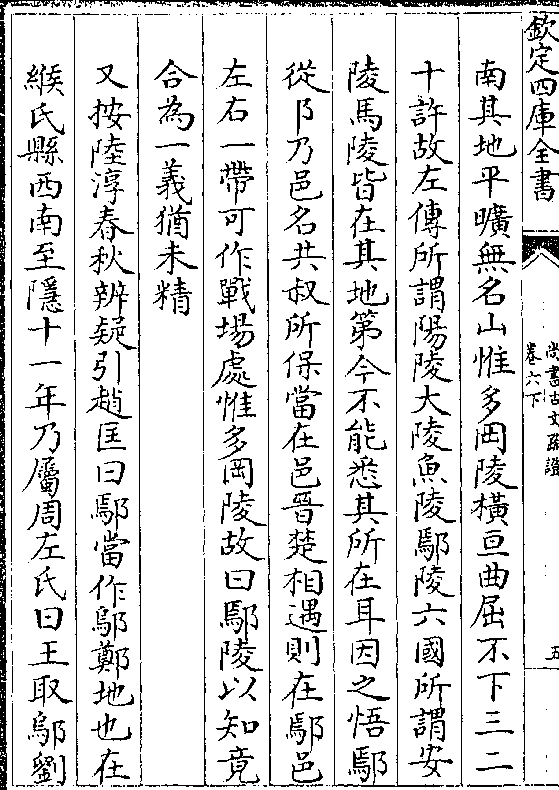 欽定四庫全書
尚書古文疏證
卷六下
五
南其地平曠無名山惟多岡陵橫亘曲屈不下三二
十許故左傳所謂陽陵大陵魚陵鄢陵六國所謂安
陵馬陵皆在其地第今不能悉其所在耳因之悟鄢
從阝乃邑名共叔所保當在邑晉楚相遇則在鄢邑
左右一帶可作戰場處惟多岡陵故曰鄢陵以知竟
合為一義猶未精
又按陸淳春秋辨疑引趙匡曰鄢當作鄔鄭地也在
緱氏縣西南至隱十一年乃屬周左氏曰王取鄔劉